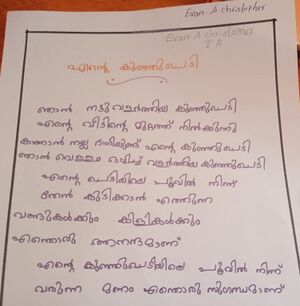 Evan A.christopher
Evan A.christopher
I A
എന്റെ കുഞ്ഞുചെടി
ഞാൻ നട്ടു വളർത്തിയ കുഞ്ഞുചെടി
എന്റെ വീടിന്റെ മുറ്റത്ത് നിൽക്കുന്നു
കാണാൻ നല്ല ഭംഗിയുണ്ട് എന്റെ കുഞ്ഞുചെടി
ഞാൻ വെള്ളം ഒഴിച്ച് വളർത്തിയ കുഞ്ഞുചെടി
എന്റെ ചെടിയിലെ പൂവിൽ നിന്ന്
തേൻ കുടിക്കാൻ എത്തുന്ന
വണ്ടുകൾക്കും കിളികൾക്കും
എന്തൊരു ആനന്ദമാണ്
എന്റെ കുഞ്ഞുചെടിയിലെ പൂവിൽ നിന്ന്
വരുന്ന മണം എന്തൊരു സുഗന്ധമാണ്